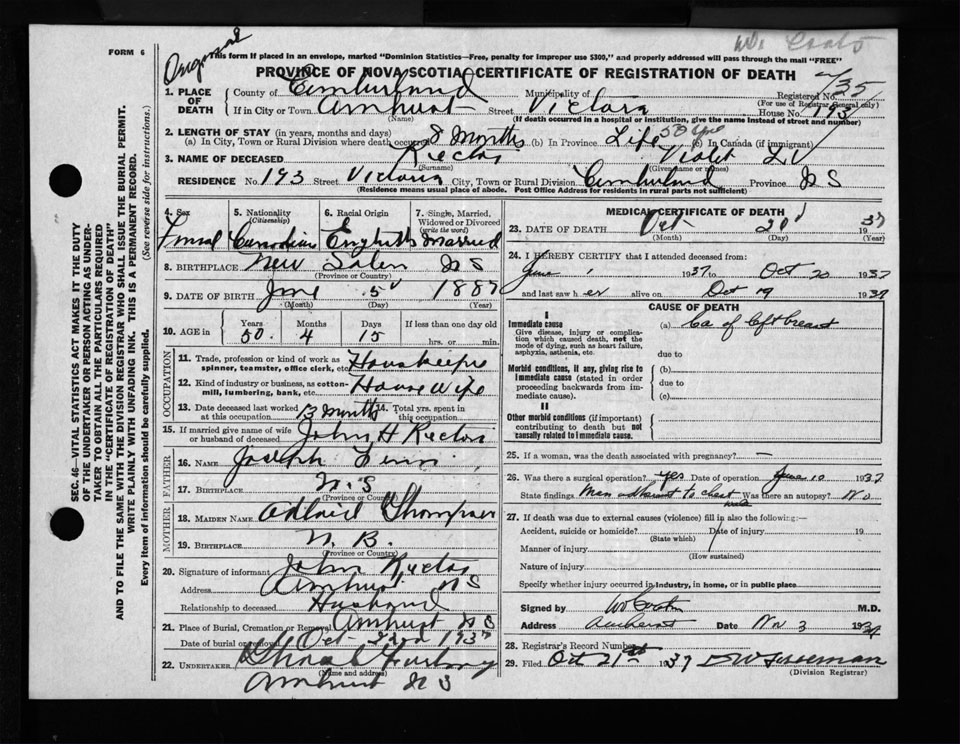 FORM 6
Original
W. Coats
This form if placed in an envelope, marked "Dominion Statistics—Free, penalty for improper use $300," and properly addressed will pass through the mail "FREE"
PROVINCE OF NOVA SCOTIA, CERTIFICATE OF REGISTRATION OF DEATH
1. PLACE OF DEATH County of Cumberland Municipality of Registered No. 35
(For use of Registrar General only)
If in City or Town Amherst Street Victoria House No. 193
(Name) (If death occurred in a hospital or institution, give the name instead of street and number)
2. LENGTH OF STAY (in years, months and days)
(a) In City, Town or Rural Division where death occurred 8 Months (b) In Province Life (c) In Canada (if immigrant)
3. NAME OF DECEASED Rector Violet
(Surname) (Given name or names)
RESIDENCE No. 193 Street Victoria City, Town or Rural Division Cumberland Province N S
(Residence means usual place of abode. Post Office Address for residents in rural parts not sufficient)
4. Sex 5. Nationality (Citizenship) 6. Racial Origin 7. Single, Married, Widowed or Divorced (write the word)
Canadian English Married
8. BIRTHPLACE New N S
(Province or Country)
9. DATE OF BIRTH June 5 1887
(Month) (Day) (Year)
10. AGE in Years Months Days If less than one day old
50 4 15 hrs. or min.
OCCUPATION
11. Trade, profession or kind of work as spinner, teamster, office clerk, etc. Houskeeper
12. Kind of industry or business, as cotton-mill, lumbering, bank, etc. House Wife
13. Date deceased last worked at this occupation 13 months 14. Total yrs. spent in this occupation
15. If married give name of wife or husband of deceased John H Rector
FATHER
16. NAME Joseph
17. BIRTHPLACE N. S
(Province or Country)
MOTHER
18. MAIDEN NAME
19. BIRTHPLACE N. B.
(Province or Country)
20. Signature of informant John Rector
Address Amherst N S
Relationship to deceased Husband
21. Place of Burial, Cremation or Removal Amherst N S
Date of burial or removal Oct 1937
22. UNDERTAKER
(Name and address)
Amherst N S
MEDICAL CERTIFICATE OF DEATH
23. DATE OF DEATH Oct 20 1937
(Month) (Day) (Year)
24. I HEREBY CERTIFY that I attended deceased from:
June 1 1937 to Oct 20 1937
and last saw her alive on Oct 19 1937
CAUSE OF DEATH
I
Immediate cause (a) Ca of left breast
Give disease, injury or complication which caused death, not the mode of dying, such as heart failure, asphyxia, asthenia, etc.
due to
Morbid conditions, if any, giving rise to immediate cause (stated in order proceeding backwards from immediate cause).
(b)
due to
(c)
II
Other morbid conditions (if important) contributing to death but not causally related to immediate cause.
25. If a woman, was the death associated with pregnancy? —
26. Was there a surgical operation? yes Date of operation June 10 1937
State findings adherent to chest wall Was there an autopsy? No
27. If death was due to external causes (violence) fill in also the following:—
Accident, suicide or homicide? Date of injury 19
(State which)
Manner of injury
(How sustained)
Nature of injury
Specify whether injury occurred in industry, in home, or in public place
Signed by M.D.
Address Amherst Date Nov 3 1937
28. Registrar's Record Number
29. Filed Oct 21st 1937
(Division Registrar)
SEC. 46—VITAL STATISTICS ACT MAKES IT THE DUTY
OF THE UNDERTAKER OR PERSON ACTING AS UNDERTAKER
TO OBTAIN ALL THE PARTICULARS REQUIRED
IN THE "CERTIFICATE OF REGISTRATION OF DEATH"
AND TO FILE THE SAME WITH THE DIVISION REGISTRAR WHO SHALL ISSUE THE BURIAL PERMIT.
WRITE PLAINLY WITH UNFADING INK. THIS IS A PERMANENT RECORD.
Every item of information should be carefully supplied. (See reverse side for instructions.)